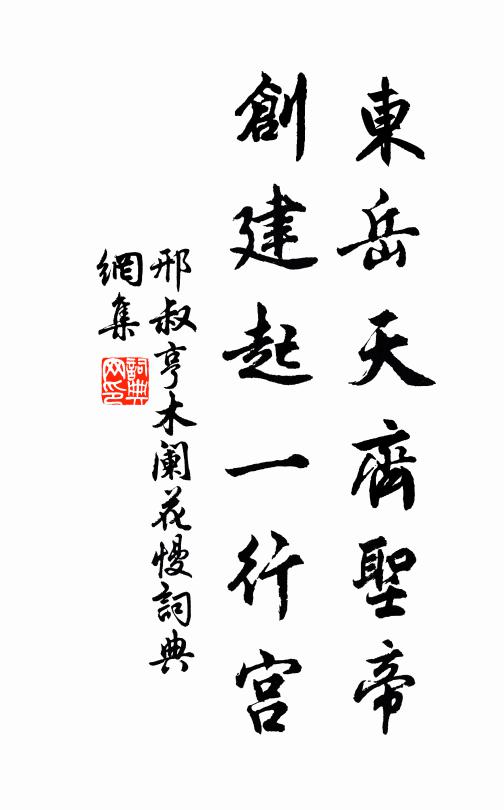 東岳天齊聖帝
創建起一行宮
邢叔亨木蘭花慢詞典
網集
詞典
网印